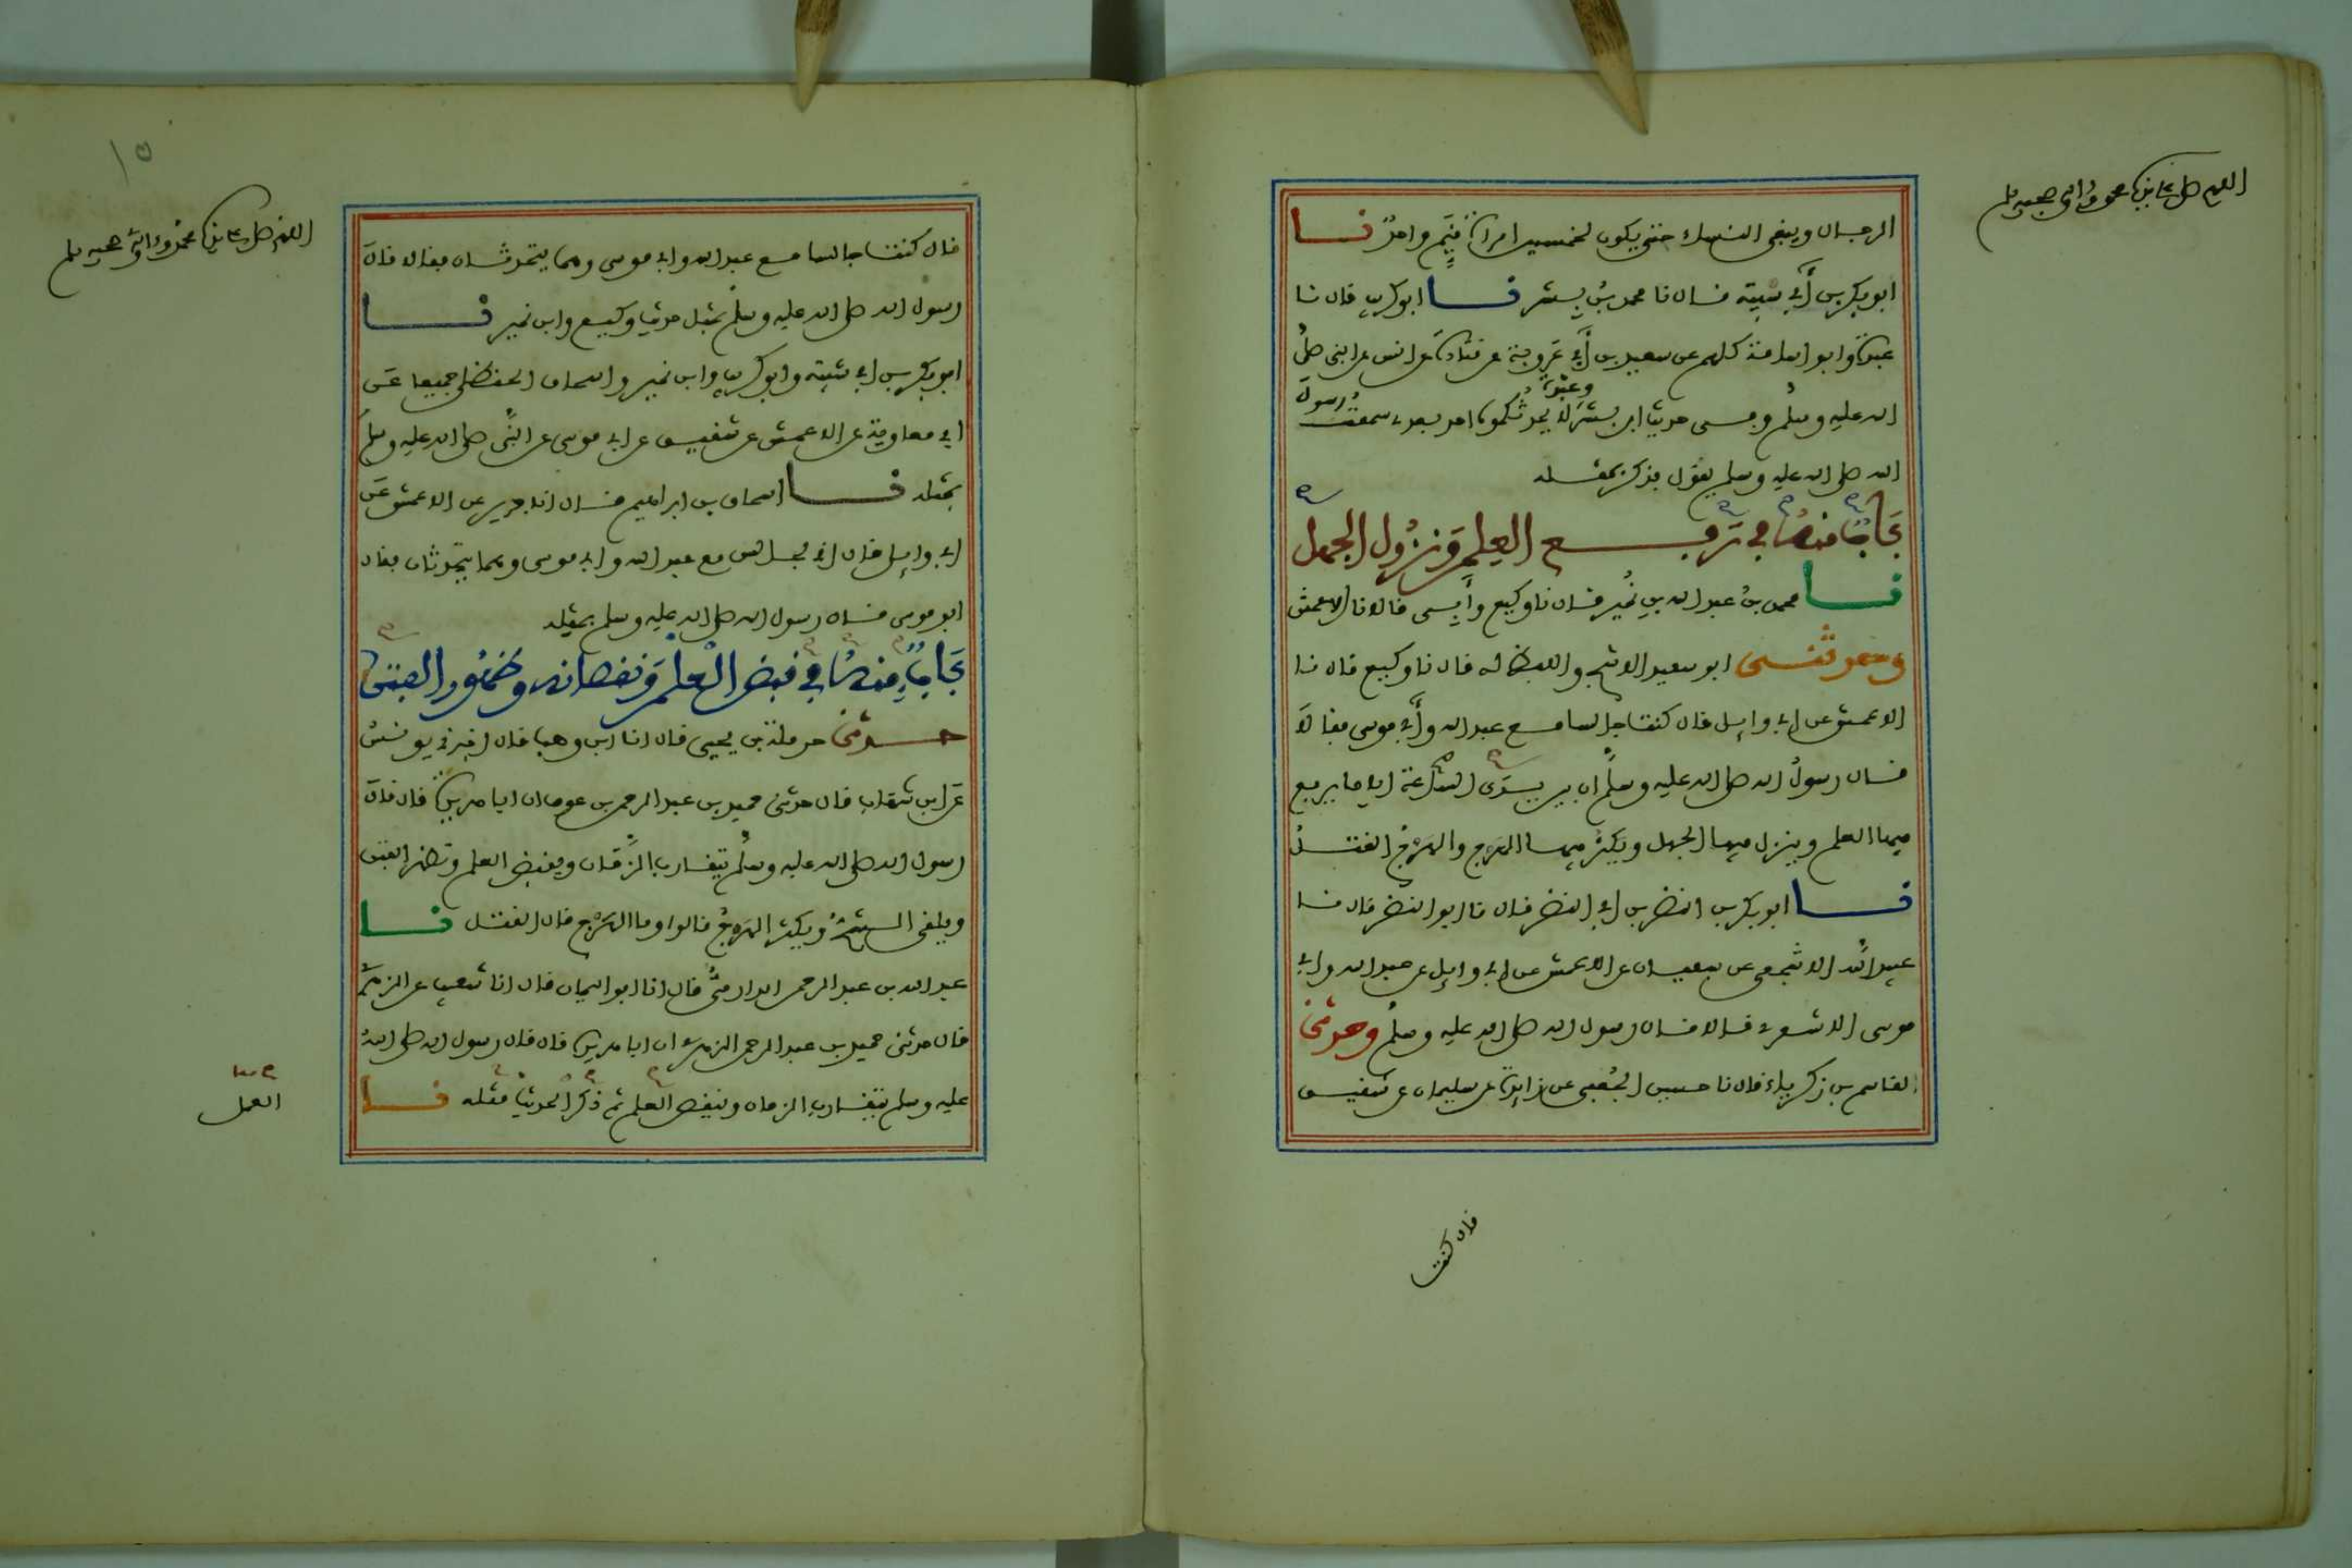 اللهم صل على نبينا محمد وءاله وصحبه وسلم
الرجال ويبقى النساء حتى يكون لخمسين امراة قيم واحد نا
ابو بكر بن أبي شيبة قال نا محمد بن بشر نا ابو كريب قال نا
عبدة وابو اسامة كلهم عن سعيد بن أبي عروبة عن قتادة عن انس عن النبي صلى
الله عليه وسلم وفي حديث ابن بشر وعبدة لا يحدثكموه احد بعدي سمعت رسول
الله صلى الله عليه وسلم يقول فذكر بمثله
باب منه في رفع العلم ونزول الجهل
نا محمد بن عبد الله بن نمير قال نا وكيع وأبي قالا نا الاعمش
وحدثني ابو سعيد الاشج واللفظ له قال نا وكيع قال نا
الاعمش عن ابي وايل قال كنت جالسا مع عبد الله وأبي موسى فقالا
قال رسول الله صلى الله عليه وسلم ان بين يدي الساعة اياما يرفع
فيها العلم وينزل فيها الجهل ويكثر فيها الهرج والهرج القتل
نا ابو بكر بن النضر بن ابي النضر قال نا ابو النضر قال نا
عبيد الله الاشجعي عن سفيان عن الاعمش عن ابي وايل عن عبد الله وابي
موسى الاشعري قالا قال رسول الله صلى الله عليه وسلم وحدثني
القاسم بن زكرياء قال نا حسين الجعفي عن زايدة عن سليمان عن شقيق
قال كنت
١٥
اللهم صل على نبينا محمد وءاله وصحبه وسلم
قال كنت جالسا مع عبد الله وابي موسى وهما يتحدثان فقالا قال
رسول الله صلى الله عليه وسلم بمثل حديث وكيع وابن نمير نا
ابو بكر بن ابي شيبة وابو كريب وابن نمير واسحاق الحنظلي جميعا عن
ابي معاوية عن الاعمش عن شقيق عن ابي موسى عن النبي صلى الله عليه وسلم
بمثله نا اسحاق بن ابراهيم قال انا جرير عن الاعمش عن
ابي وايل قال اني لجالس مع عبد الله وابي موسى وهما يتحدثان فقال
ابو موسى قال رسول الله صلى الله عليه وسلم بمثله
باب منه في قبض العلم ونقصانه وظهور الفتن
حدثني حرملة بن يحيى قال انا ابن وهب قال اخبرني يونس
عن ابن شهاب قال حدثني حميد بن عبد الرحمن بن عوف ان ابا هريرة قال قال
رسول الله صلى الله عليه وسلم يتقارب الزمان ويقبض العلم وتظهر الفتن
ويلقى الشح ويكثر الهرج قالوا وما الهرج قال القتل نا
عبد الله بن عبد الرحمن الدارمي قال انا ابو اليمان قال انا شعيب عن الزهري
قال حدثني حميد بن عبد الرحمن الزهري ان ابا هريرة قال قال رسول الله صلى الله
عليه وسلم يتقارب الزمان وينقص العلم ثم ذكر الحديث مثله نا
العمل